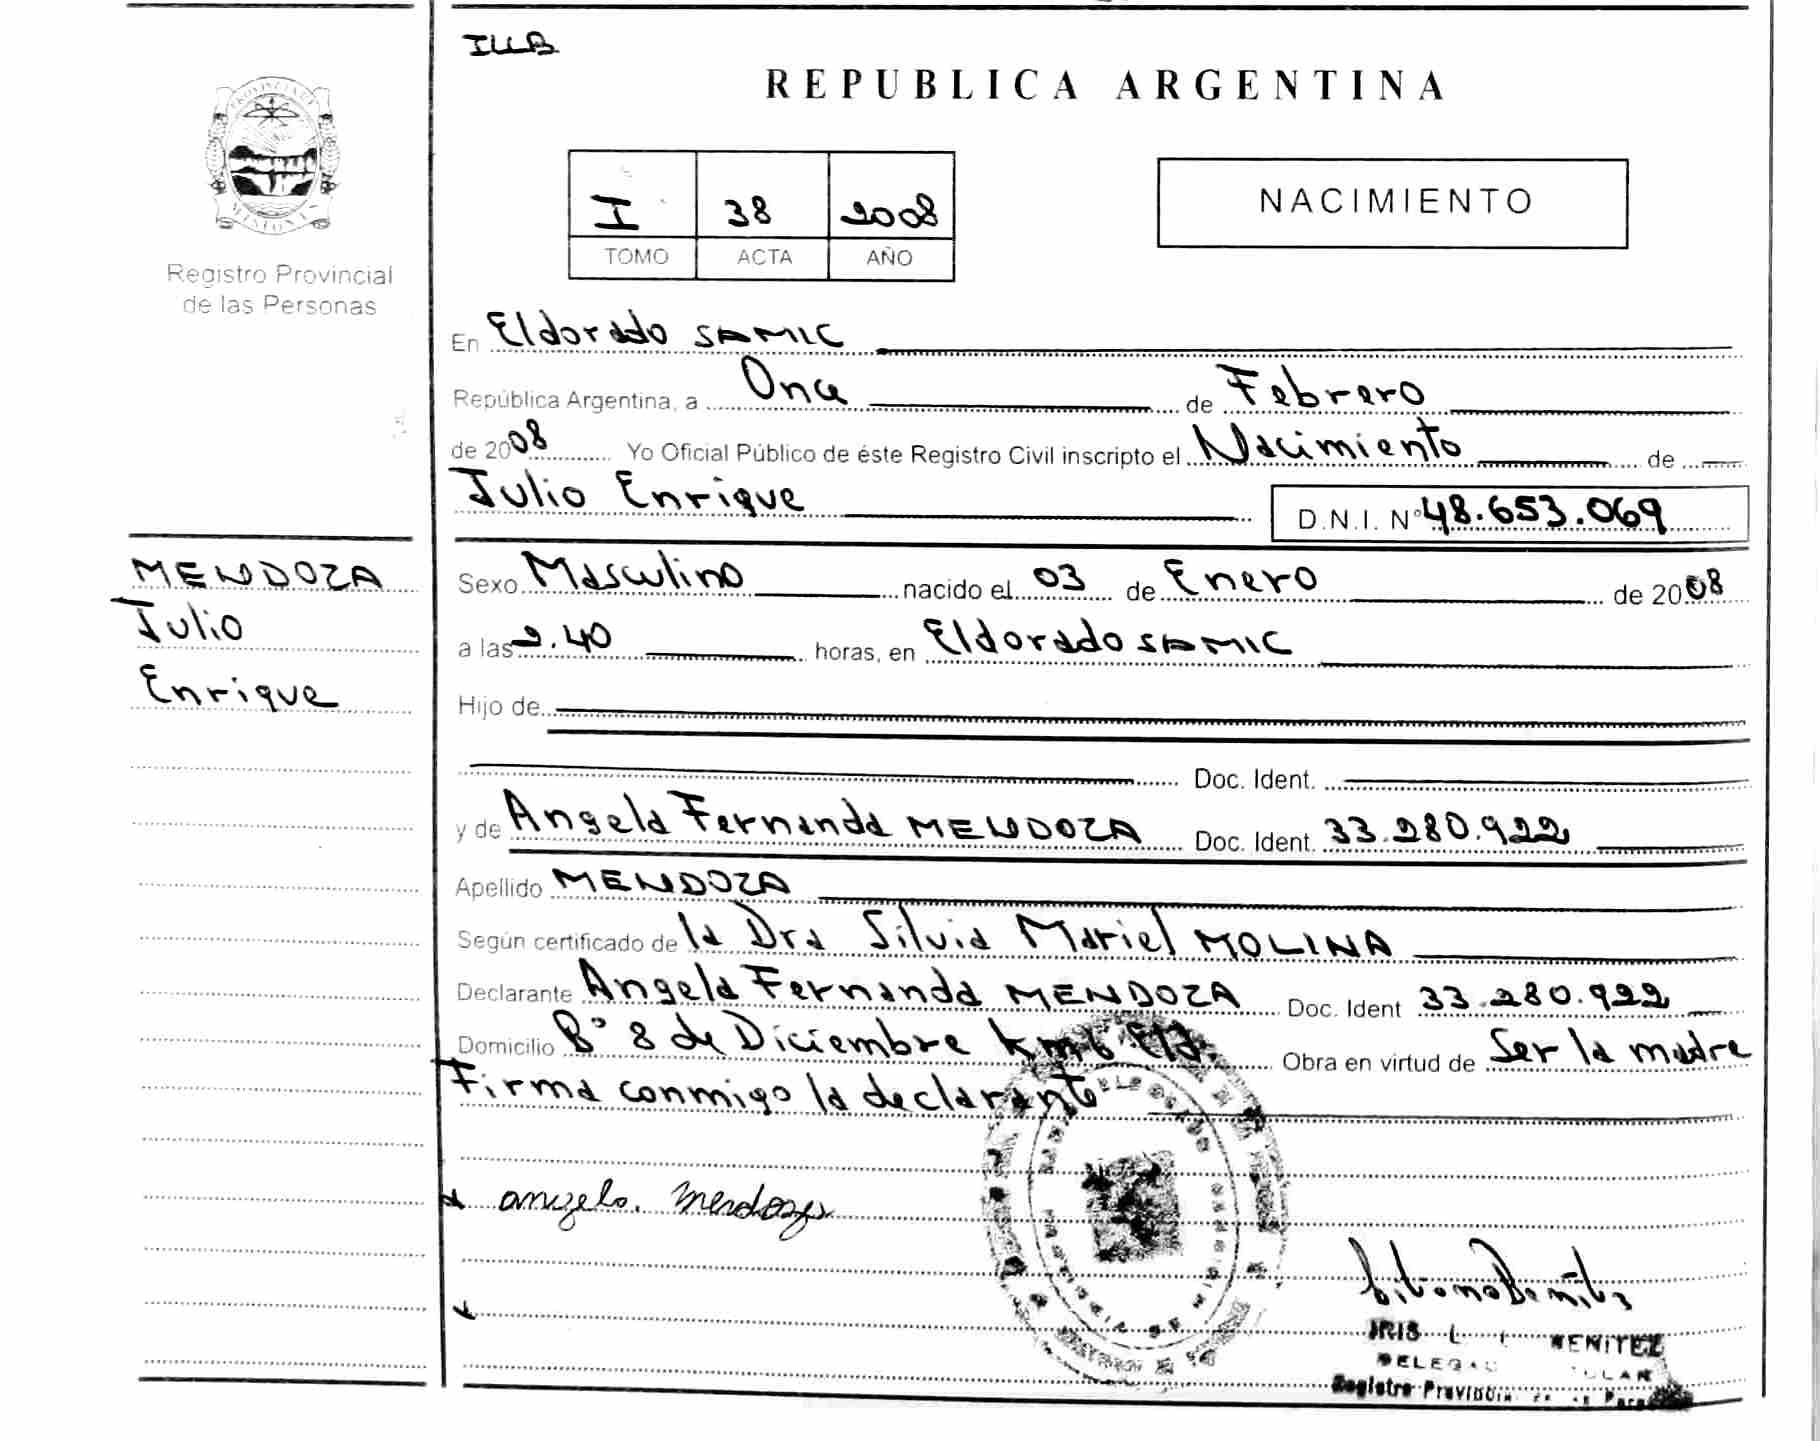 ILLB
REPUBLICA ARGENTINA
PROVINCIA DE
MISIONES
Registro Provincial
de las Personas
I 38 2008
TOMO ACTA AÑO
NACIMIENTO
En Eldorado SAMIC
República Argentina, a Once de Febrero
de 2008 Yo Oficial Público de éste Registro Civil inscripto el Nacimiento de
Julio Enrique D.N.I. Nº 48.653.069
MENDOZA
Julio
Enrique
Sexo Masculino nacido el 03 de Enero de 2008
a las 2.40 horas, en Eldorado SAMIC
Hijo de
Doc. Ident.
y de Angela Fernanda MENDOZA Doc. Ident. 33.280.922
Apellido MENDOZA
Según certificado de la Dra Silvia Mariel MOLINA
Declarante Angela Fernanda MENDOZA Doc. Ident 33.280.922
Domicilio Bº 8 de Diciembre km 6 Eld. Obra en virtud de Ser la madre
Firma conmigo la declarante
angela. Mendoza
IRIS L BENITEZ
Registro Provincial